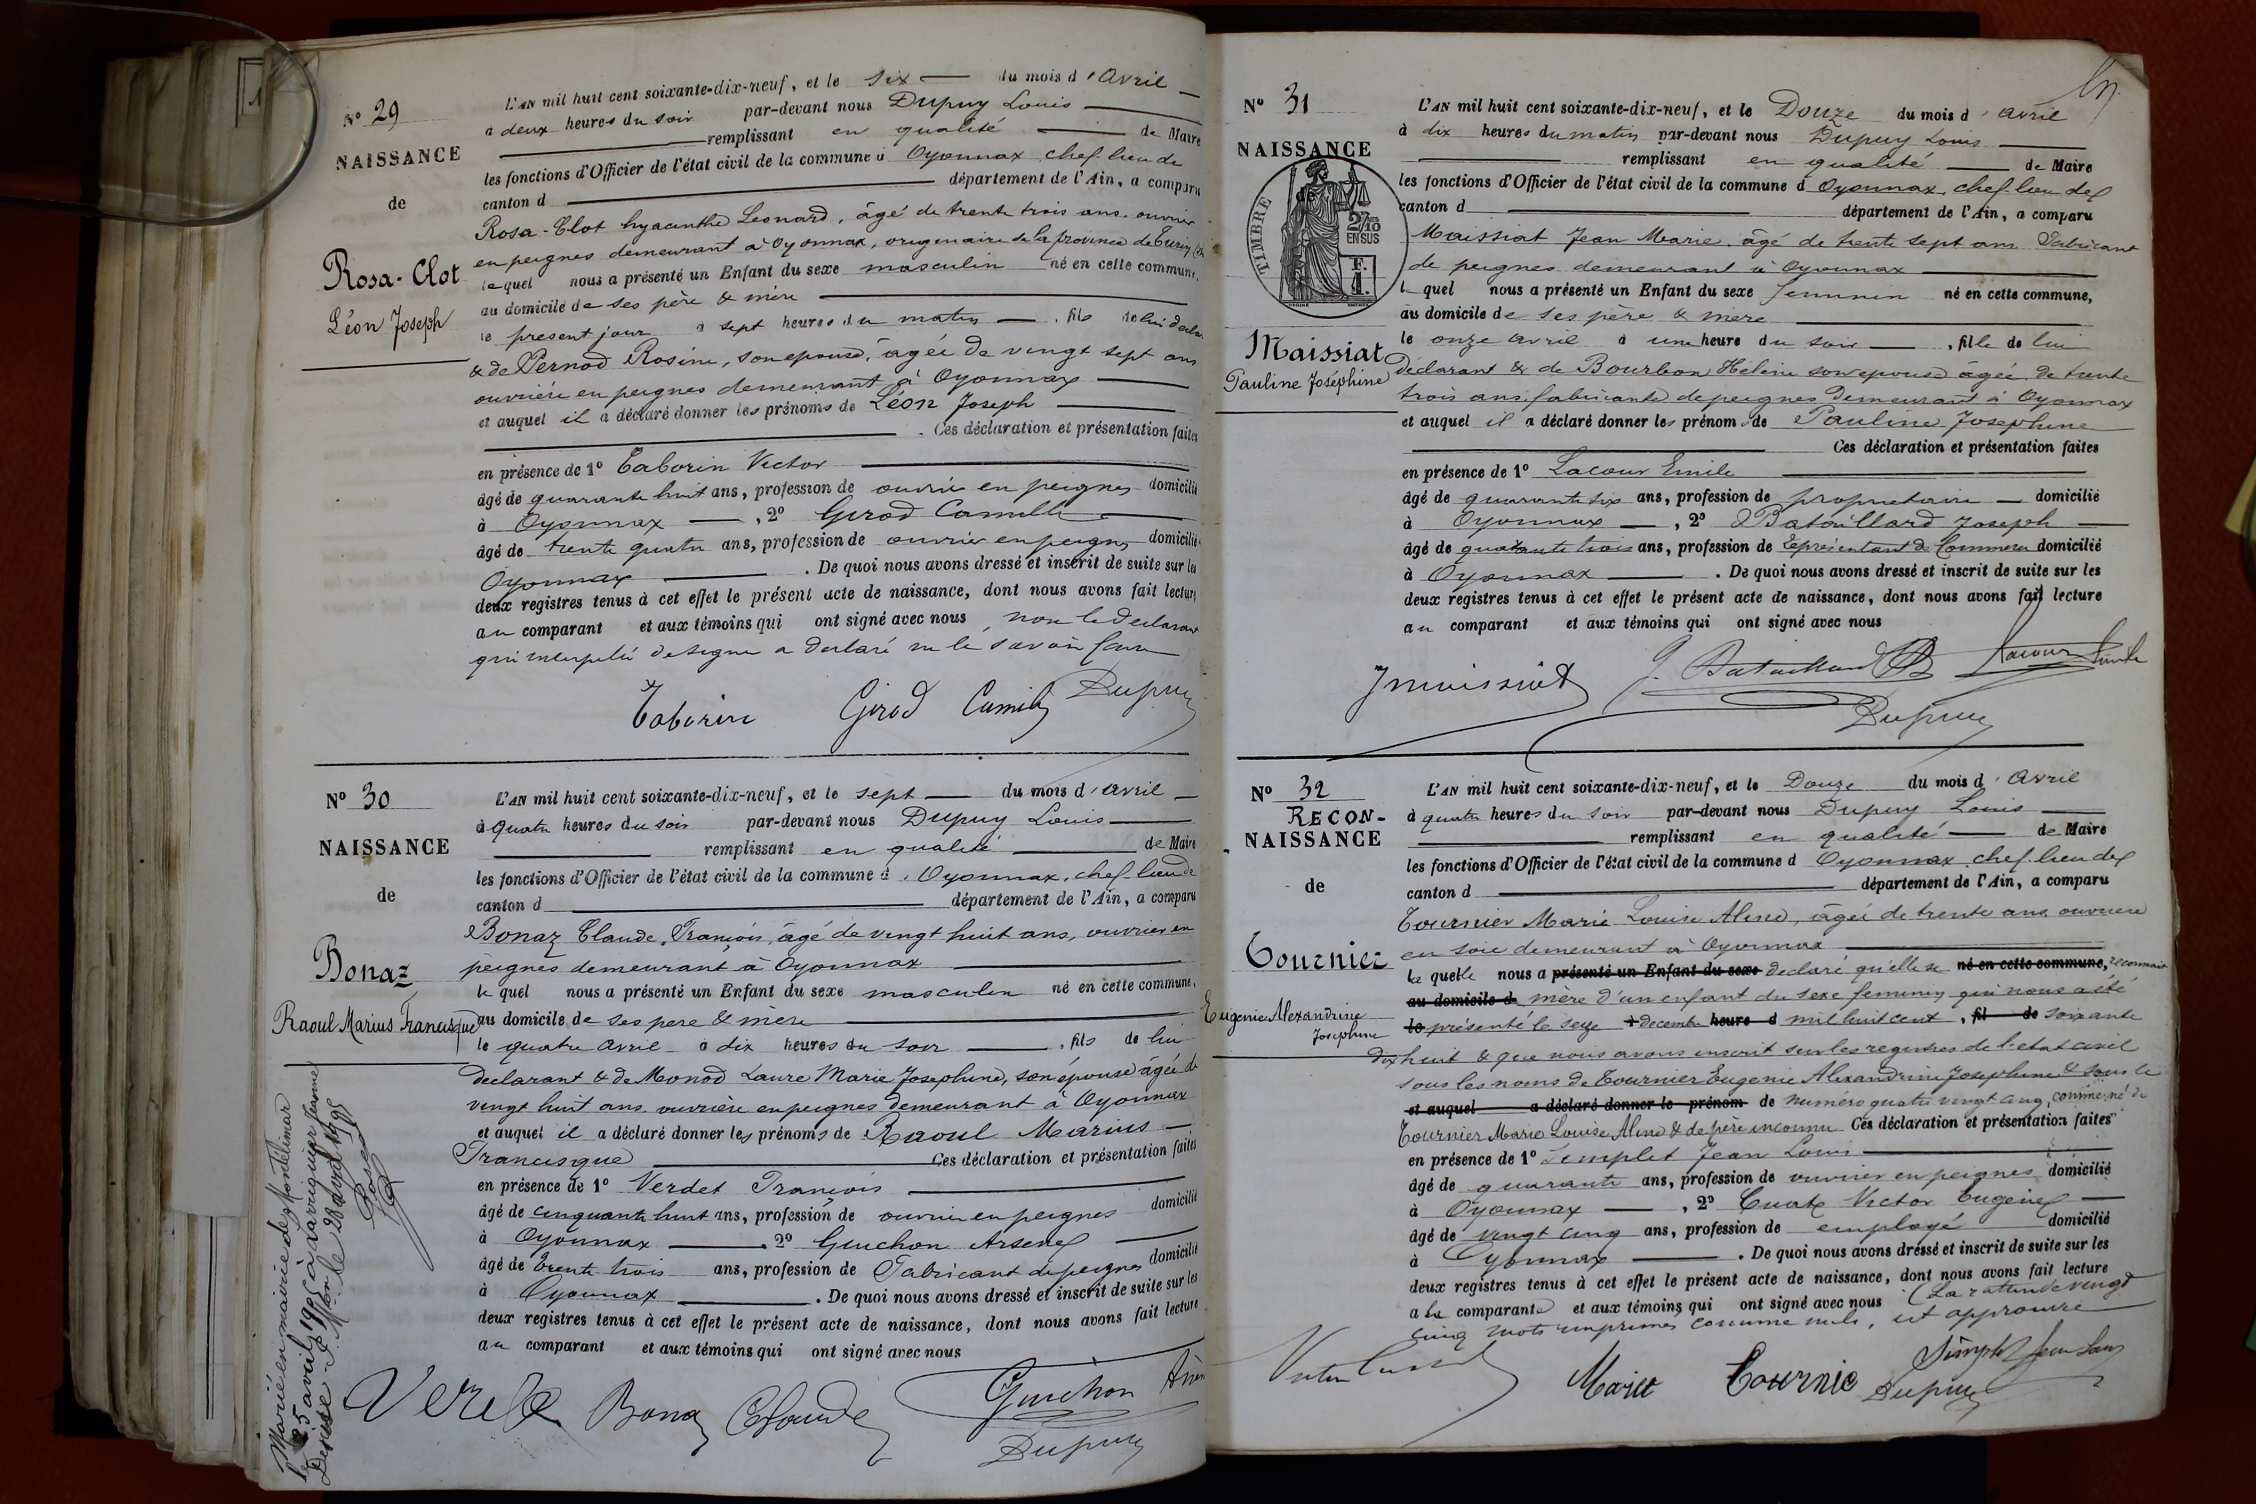 Nº 29
NAISSANCE
de
Rosa-Clot
Léon Joseph
L'AN mil huit cent soixante-dix-neuf, et le six du mois d'avril
à deux heures du soir par-devant nous Dupuy Louis
remplissant en qualité de Maire
les fonctions d'Officier de l'état civil de la commune d Oyonnax, chef lieu de
canton d département de l'Ain, a comparu
Rosa-Clot hyacinthe Leonard, âgé de trente trois ans, ouvrier
en peignes demeurant à Oyonnax, originaire de la province de Turin
le quel nous a présenté un Enfant du sexe masculin né en cette commune,
au domicile de ses père & mère
le present jour à sept heures du matin, fils de lui décla
& de Pernod Rosine, son épouse, âgée de vingt sept ans
ouvrière en peignes demeurant à Oyonnax
et auquel il a déclaré donner les prénoms de Léon Joseph
Ces déclaration et présentation faites
en présence de 1º Taborin Victor
âgé de quarante huit ans, profession de ouvrier en peignes domicilié
à Oyonnax, 2º Girod Camille
âgé de trente quatre ans, profession de ouvrier en peignes domicilié
Oyonnax. De quoi nous avons dressé et inscrit de suite sur les
deux registres tenus à cet effet le présent acte de naissance, dont nous avons fait lecture
au comparant et aux témoins qui ont signé avec nous, non le déclarant
qui interpellé de signer a déclaré ne le savoir faire
Taborin Girod Camille Dupuy
Nº 30
NAISSANCE
de
Bonaz
Raoul Marius Francisque
L'AN mil huit cent soixante-dix-neuf, et le sept du mois d'avril
à quatre heures du soir par-devant nous Dupuy Louis
remplissant en qualité de Maire
les fonctions d'Officier de l'état civil de la commune d'Oyonnax, chef lieu de
canton d département de l'Ain, a comparu
Bonaz Claude François, âgé de vingt huit ans, ouvrier en
peignes demeurant à Oyonnax
le quel nous a présenté un Enfant du sexe masculin né en cette commune,
au domicile de ses pere & mère
le quatre avril à dix heures du soir, fils de lui
declarant & de Monod Laure Marie Josephine, son épouse âgée de
vingt huit ans, ouvrière en peignes demeurant à Oyonnax
et auquel il a déclaré donner les prénoms de Raoul Marius
Francisque Ces déclaration et présentation faites
en présence de 1º Verdet François
âgé de cinquante huit ans, profession de ouvrier en peignes domicilié
à Oyonnax 2º Guichon Arsene
âgé de trente trois ans, profession de Fabricant de peignes domicilié
à Oyonnax. De quoi nous avons dressé et inscrit de suite sur les
deux registres tenus à cet effet le présent acte de naissance, dont nous avons fait lecture
au comparant et aux témoins qui ont signé avec nous
Bonaz Claude Guichon Dupuy
Marié en mairie de Montélimar
le 25 avril 1905 à Lavriguier Jeanne
Denise. Mon le 28 avril 1905
Nº 31
NAISSANCE
de
TIMBRE
2/10
EN SUS
F.
1.
Maissiat
Pauline Joséphine
L'AN mil huit cent soixante-dix-neuf, et le Douze du mois d'avril
à dix heures du matin par-devant nous Dupuy Louis
remplissant en qualité de Maire
les fonctions d'Officier de l'état civil de la commune d Oyonnax, chef lieu de
canton d département de l'Ain, a comparu
Maissiat Jean Marie, âgé de trente sept ans Fabricant
de peignes demeurant à Oyonnax
le quel nous a présenté un Enfant du sexe feminin né en cette commune,
au domicile de ses père & mere
le onze avril à une heure du soir, fille de lui
déclarant & de Bourbon Hélène son epouse âgée de trente
trois ans fabricante de peignes Demeurant à Oyonnax
et auquel il a déclaré donner les prénom de Pauline Josephine
Ces déclaration et présentation faites
en présence de 1º Lacour Emile
âgé de quarante six ans, profession de propriétaire domicilié
à Oyonnax, 2º Bataillard Joseph
âgé de quarante trois ans, profession de Représentant de Commerce domicilié
à Oyonnax. De quoi nous avons dressé et inscrit de suite sur les
deux registres tenus à cet effet le présent acte de naissance, dont nous avons fait lecture
au comparant et aux témoins qui ont signé avec nous
Jmaissiat J. Bataillard Lacour Emile
Dupuy
Nº 32
RECON-
NAISSANCE
de
Tournier
Eugenie Alexandrine
Josephine
L'AN mil huit cent soixante-dix-neuf, et le Douze du mois d'Avril
à quatre heures du soir par-devant nous Dupuy Louis
remplissant en qualité de Maire
les fonctions d'Officier de l'état civil de la commune d Oyonnax, chef lieu de
canton d département de l'Ain, a comparu
Tournier Marie Louise Aline, âgée de trente ans, ouvriere
en soie demeurant à Oyonnax
la quelle nous a présenté un Enfant du sexe declaré qu'elle se né en cette commune, reconnait
au domicile d mère d'un enfant du sexe feminin qui nous a été
le présenté le seize à decembre heure d mil huit cent, fil de soixante
dix huit & que nous avons inscrit sur les registres de l'état civil
sous les noms de Tournier Eugenie Alexandrine Josephine & sous le
et auquel a déclaré donner le prénom de numéro quatre vingt cinq, comme né de
Tournier Marie Louise Aline & de père inconnu Ces déclaration et présentation faites
en présence de 1º Simplet Jean Louis
âgé de quarante ans, profession de ouvrier en peignes domicilié
à Oyonnax, 2º Cuaz Victor Eugène
âgé de vingt cinq ans, profession de employé domicilié
à Oyonnax. De quoi nous avons dressé et inscrit de suite sur les
deux registres tenus à cet effet le présent acte de naissance, dont nous avons fait lecture
à la comparante et aux témoins qui ont signé avec nous (La rature de vingt
cinq mots imprimés comme nuls, est approuvée
Marie Tournie Simplet Jean Louis
Dupuy